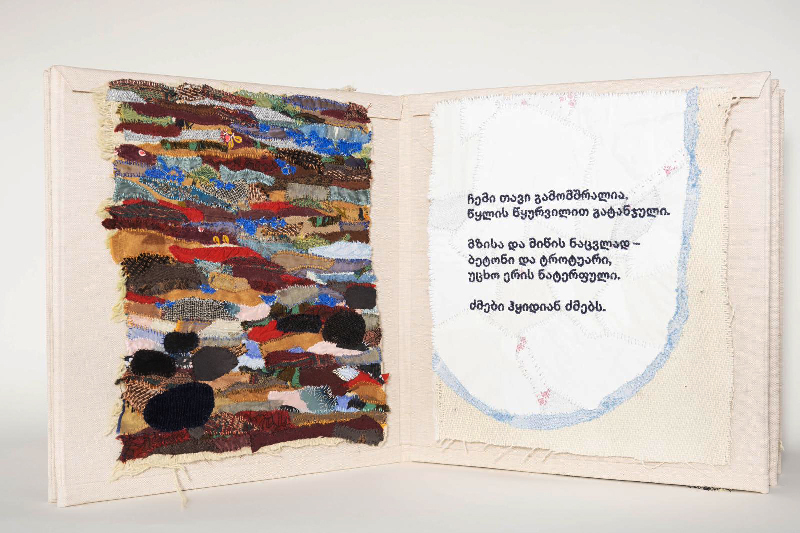 ჩემი თავი გამომშრალია,
წყლის წყურვილით გატანჯული.
მზისა და მიწის ნაცვლად –
ბეტონი და ტროტუარი,
უცხო ერის ნატერფული.
ძმები ჰყიდიან ძმებს.